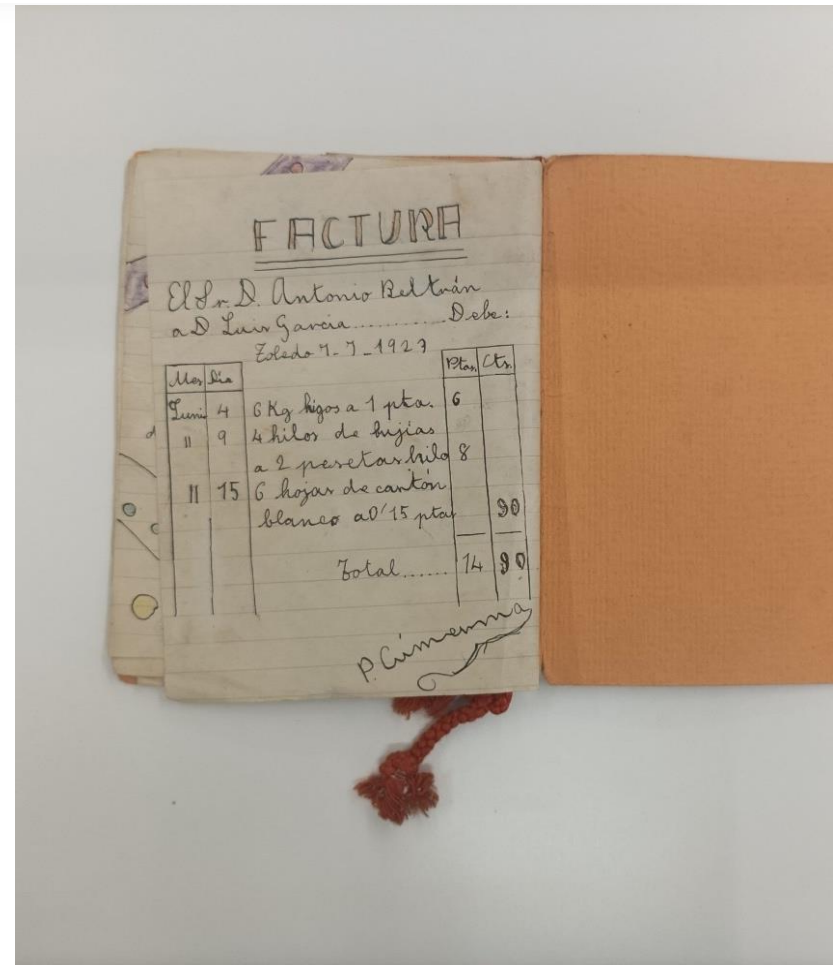 FACTURA
El Sr. D. Antonio Beltrán
a D Luis Garcia............Debe:
Toledo 7-7-1927
Mes Dia Ptas, Cts.
Juni 4 6 Kg higos a 1 pta. 6
" 9 4 hilos de bujias
a 2 pesetas hilo 8
" 15 6 hojas de cartón
blanco a 0'15 ptas 90
Total...... 14 90
P.